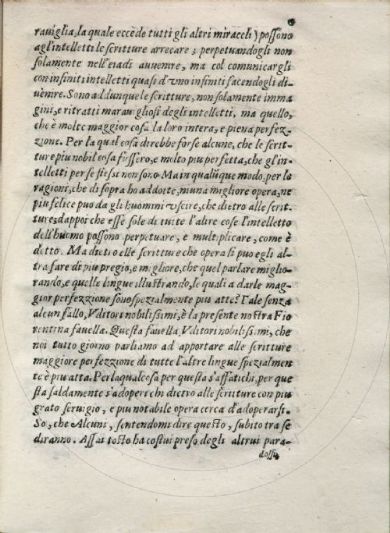 rauiglia, la quale eccède tutti gli altri miracoli) possono
agl'intelletti le scritture arrecare; perpetuandogli non
solamente nell'etadi auuenire, ma col comunicargli
con infiniti intelletti quasi d'vno infiniti facendogli di-
uenire. Sono addunque le scritture, non solamente imma
gini, e ritratti marauigliosi degli intelletti, ma quello,
che è molto maggior cosa la loro intera, e piena perfez-
zione. Per la qual cosa direbbe forse alcuno, che le scrit-
ture piu nobil cosa fossero, e molto piu perfetta, che gl'in-
telletti per se stessi non sono. Ma in qualũque modo, per le
ragioni, che di sopra ho addotte, niuna migliore opera, ne
piu felice puo da gli huommi vscire, che dietro alle scrit-
ture; dappoi che esse sole di tutte l'altre cose l'intelletto
dell'huomo possono perpetuare, e multiplicare, come è
detto. Ma dietro elle scritture che opera si puo egli al-
tra fare di piu pregio, e migliore, che quel parlare miglio-
rando, e quelle lingue illustrando, le quali a darle mag-
gior perfezzione sono spezialmente piu atte? Tale senza
alcun fallo, Vditori nobilissimi, è la presente nostra Fio-
rentina fauella. Questa fauella, Vditori nobilissimi, che
noi tutto giorno parliamo ad apportare alle scritture
maggiore perfezzione di tutte l'altre lingue spezialmen
te è piu atta. Perlaqualcosa per questa s'affatichi, per que
sta saldamente s'adoperi chi dietro alle scritture con piu
grato seruigio, e piu notabile opera cerca d'adoperarsi.
So, che Alcuni, sentendomi dire questo, subito tra se
diranno. Assai tosto ha costui preso degli altrui para-
dossi